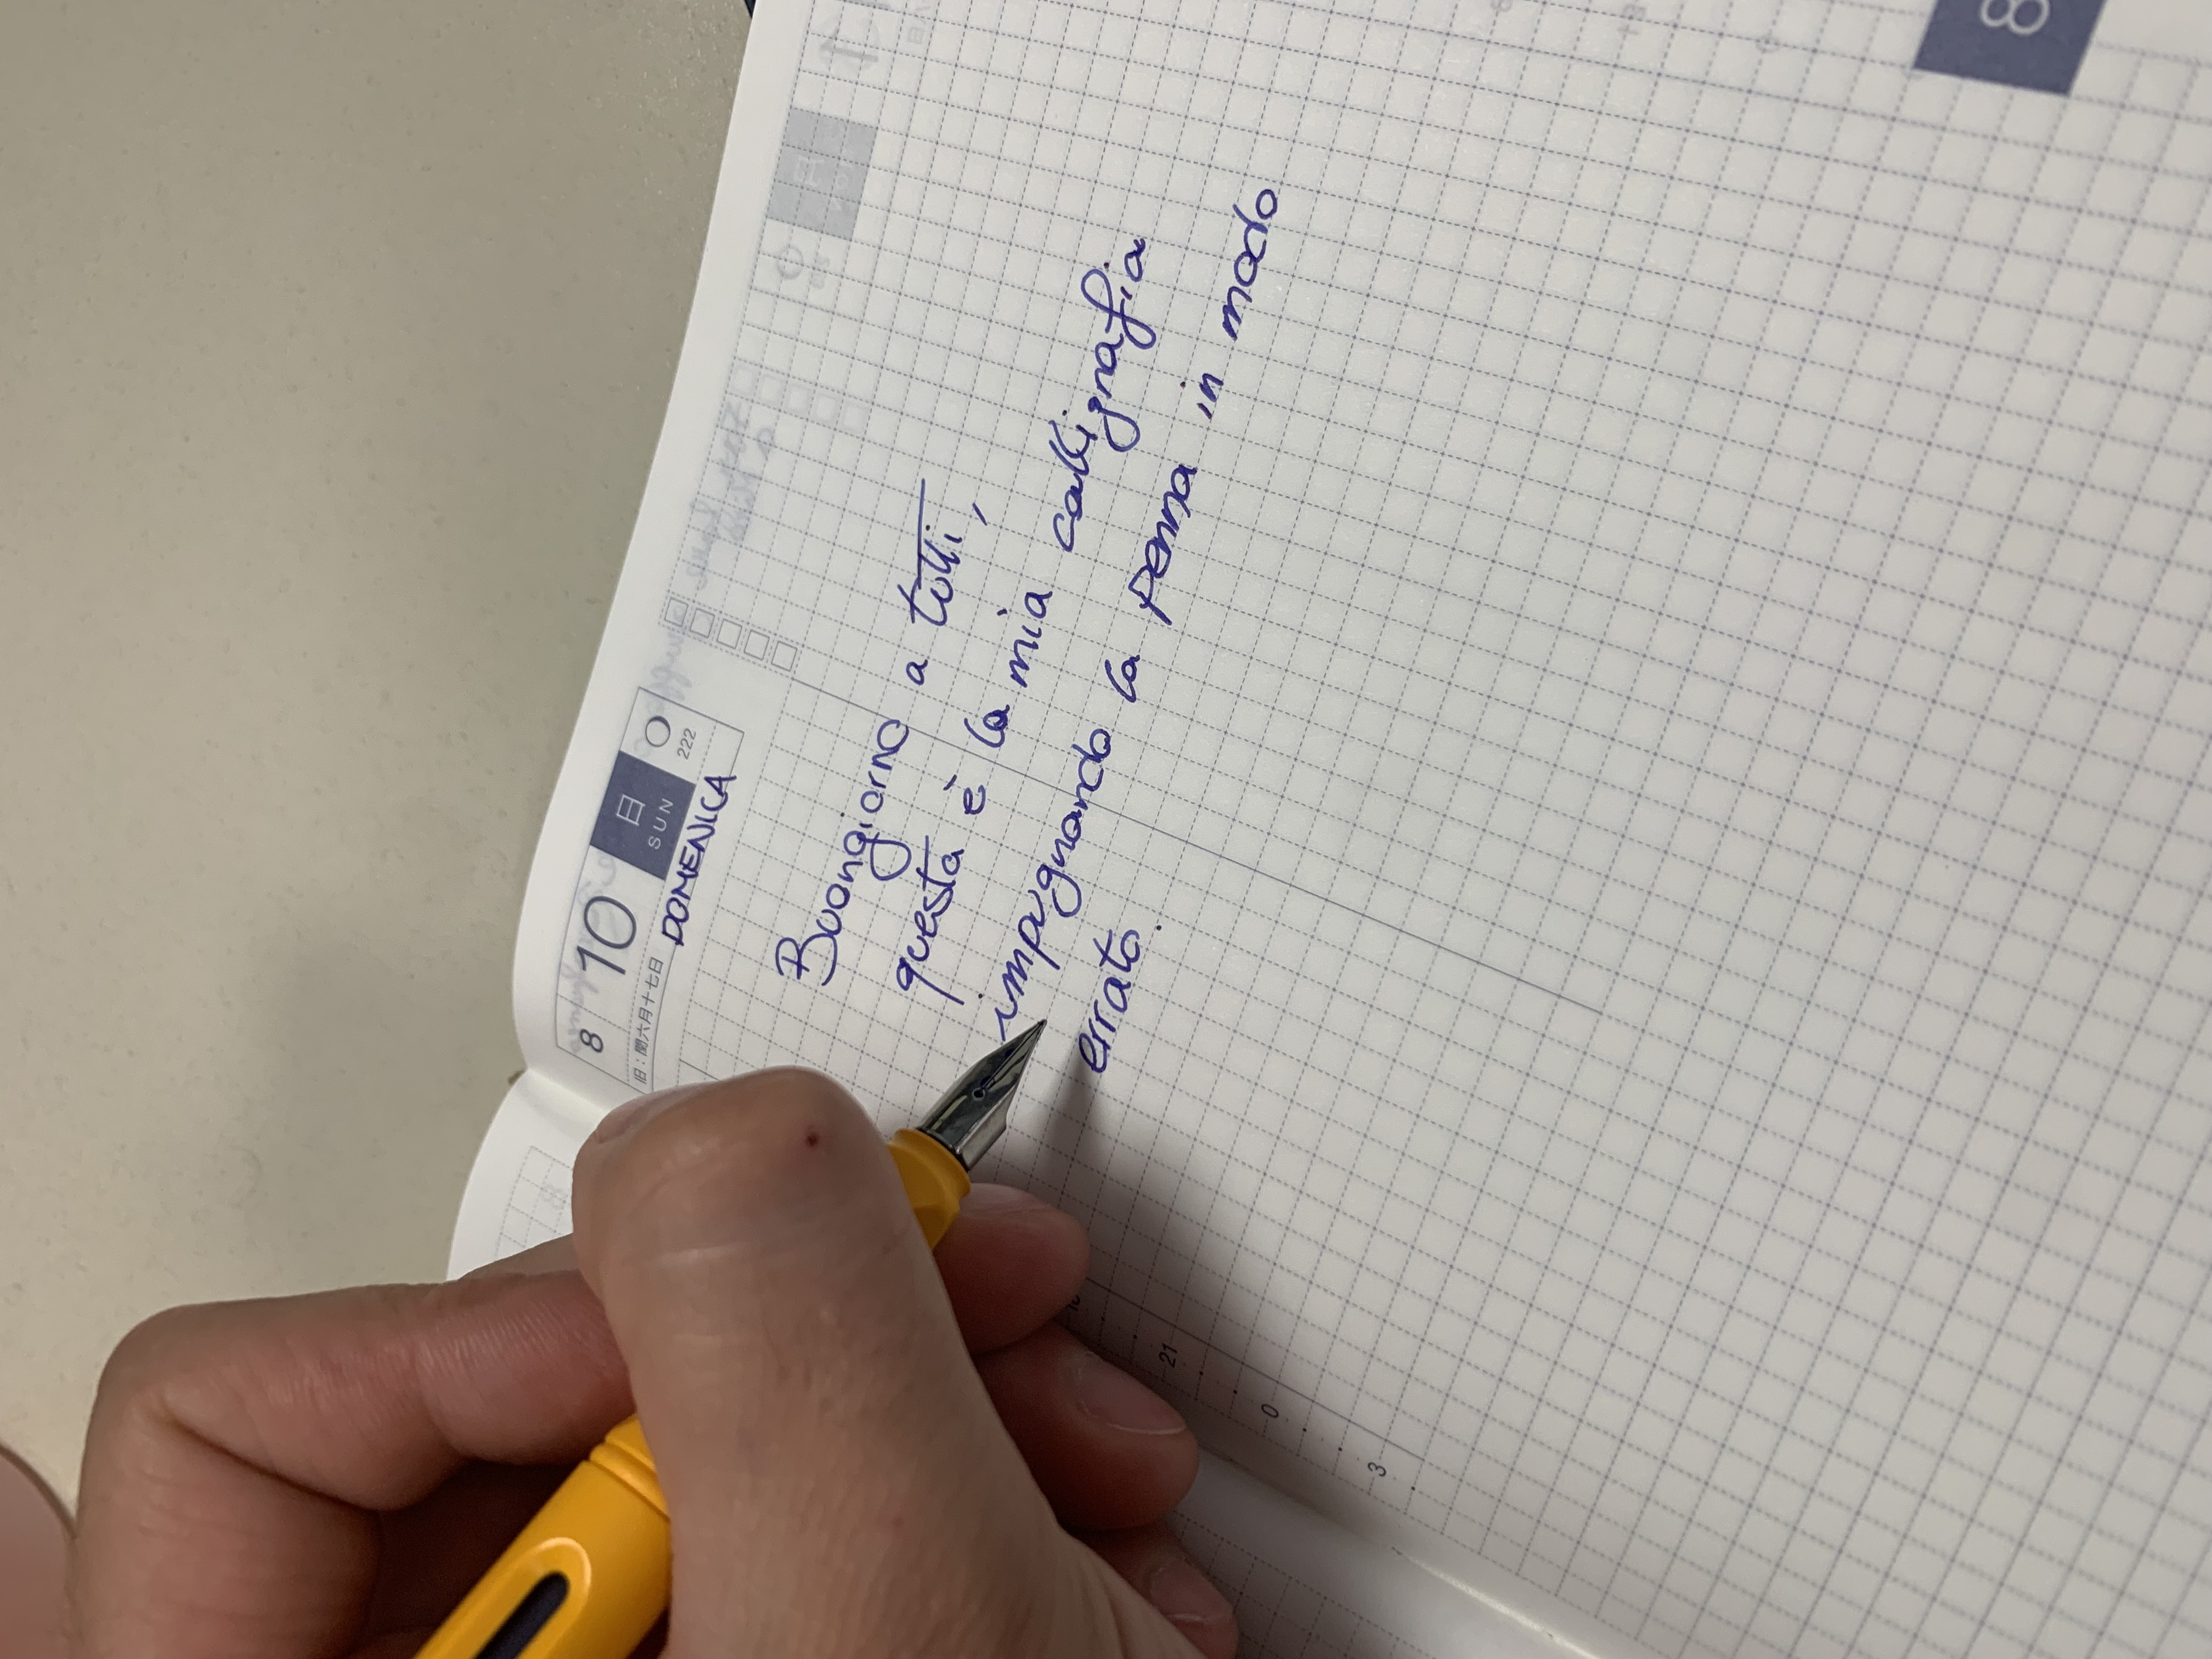 8 10 日 SUN 222
旧:閏六月十七日
DOMENICA
Buongiorno a tutti,
questa è la mia calligrafia
impugnando la penna in modo
errato.
21
0
3
8